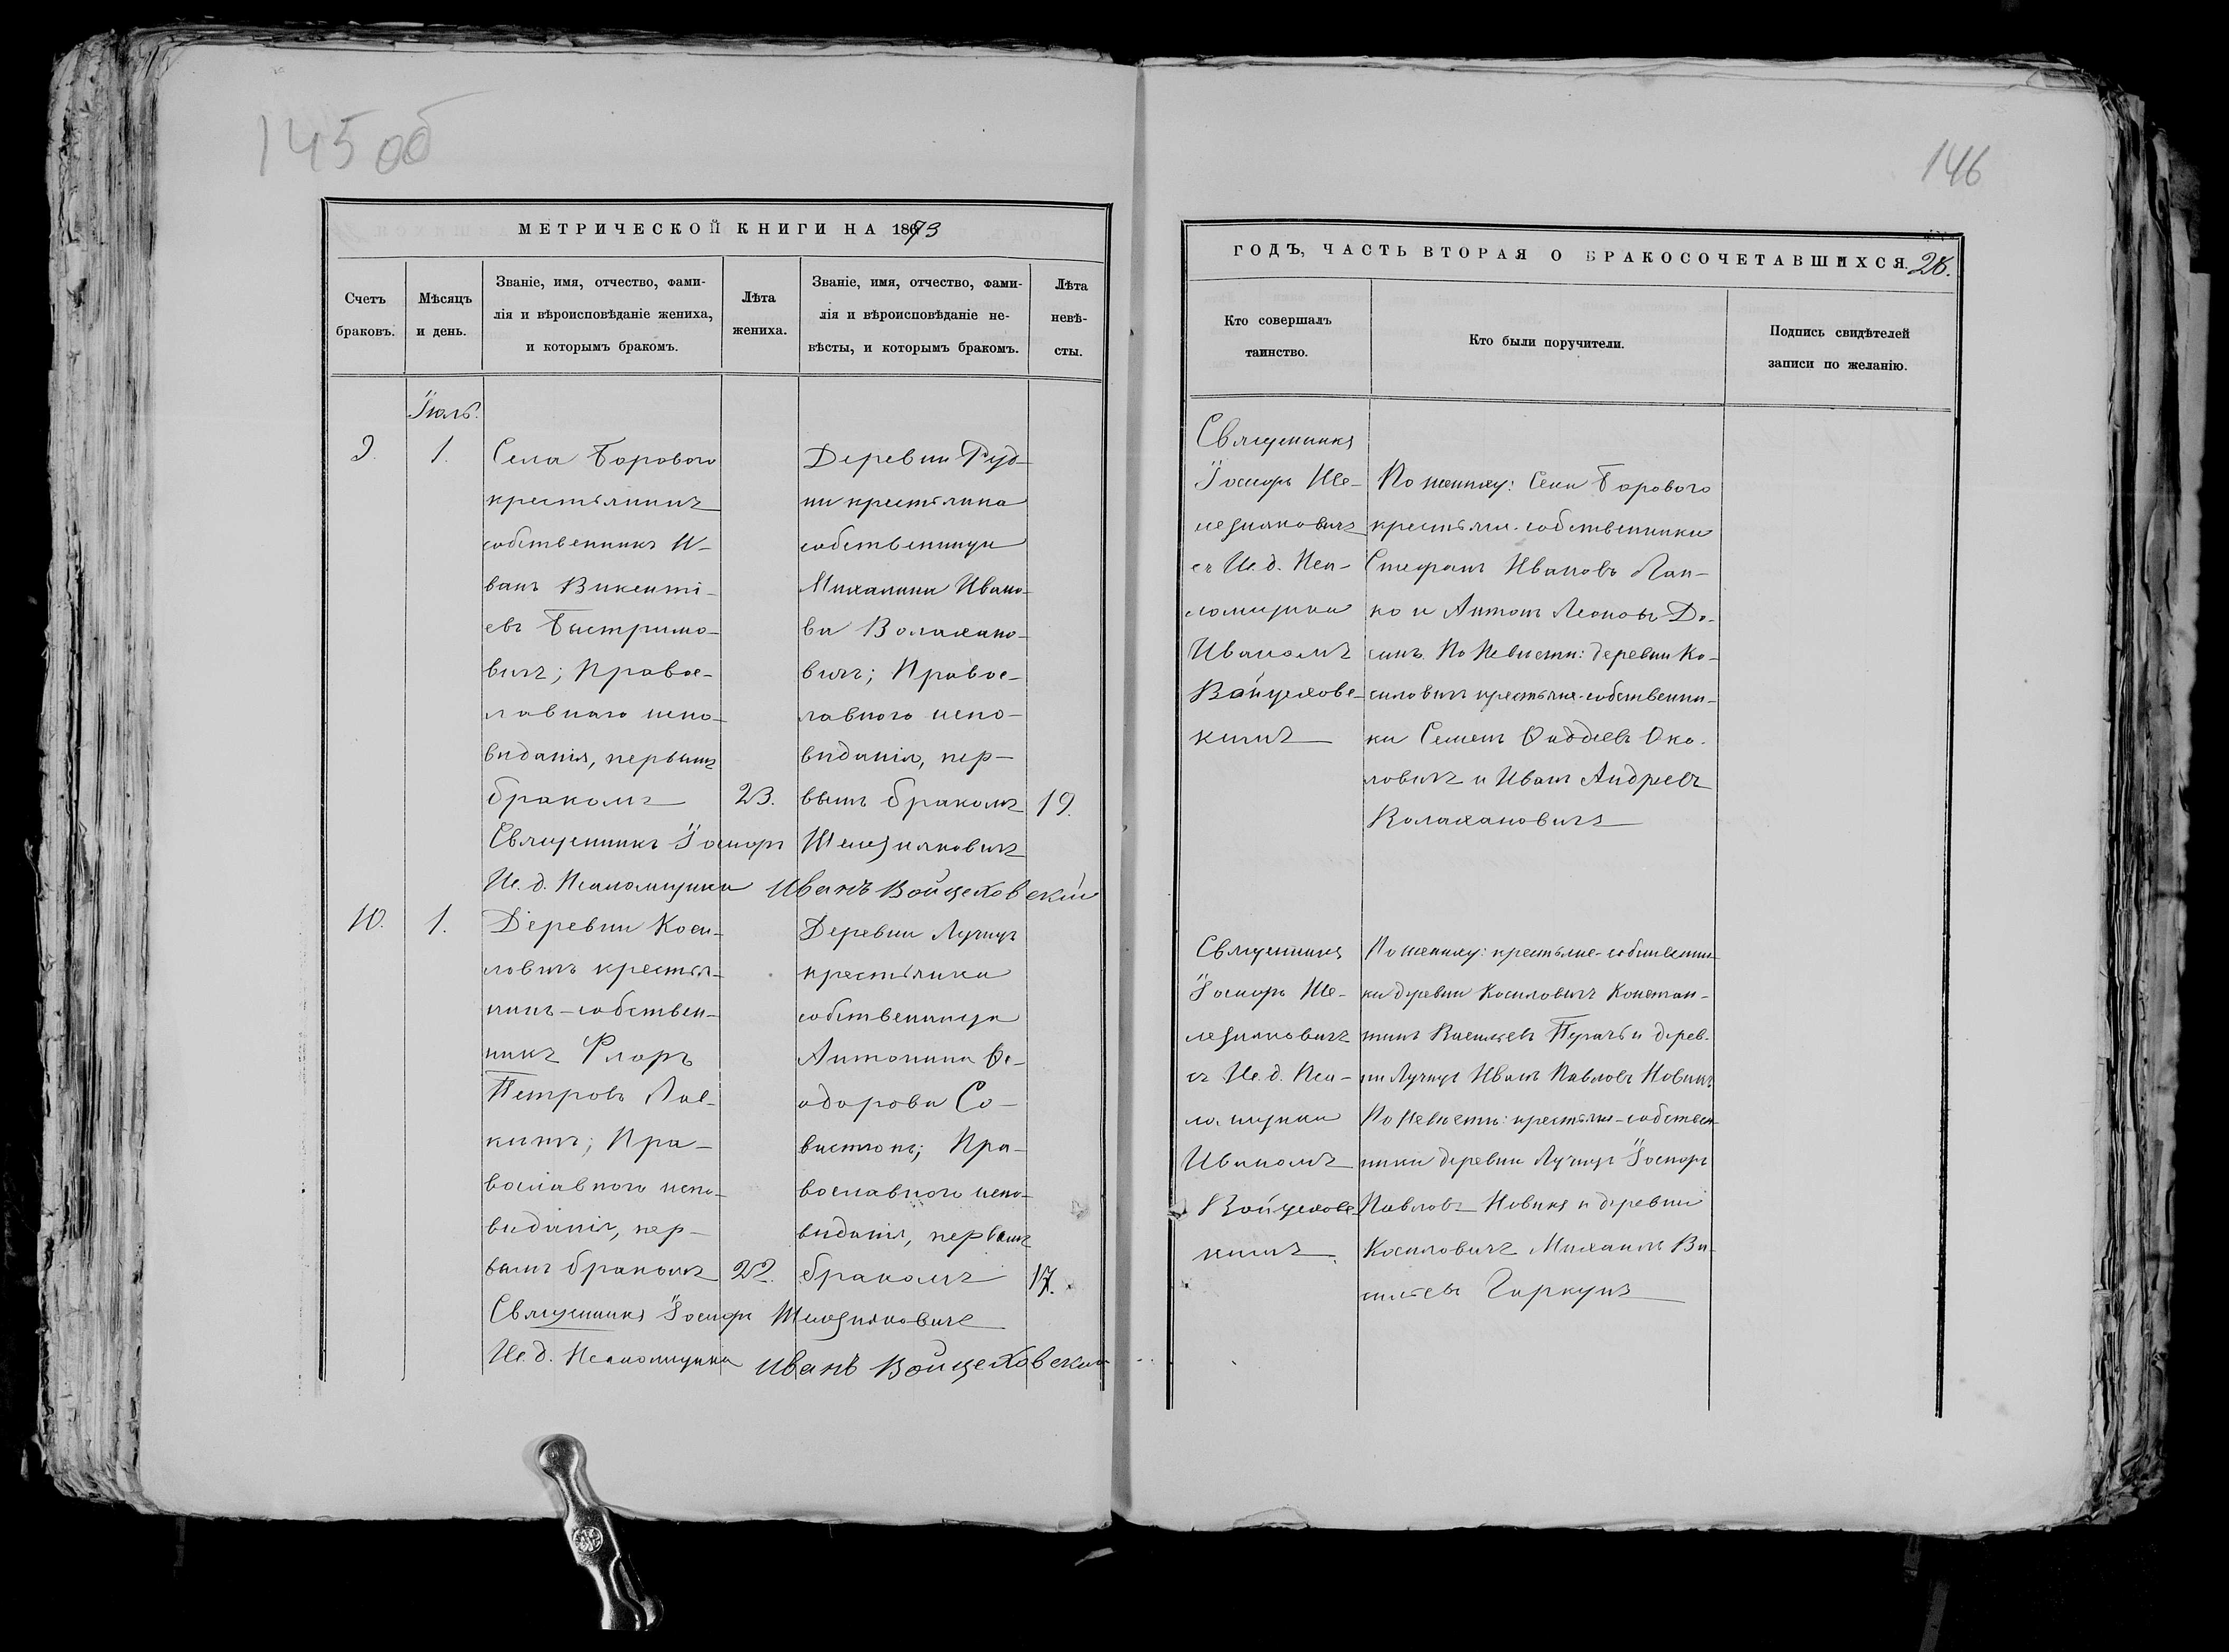 145 об
146
МЕТРИЧЕСКОЙ КНИГИ НА 1873
Счетъ браковъ.
Мѣсяцъ и день.
Званіе, имя, отчество, фами-
лія и вѣроисповѣданіе жениха,
и которымъ бракомъ.
Лѣта жениха.
Званіе, имя, отчество, фами-
лія и вѣроисповѣданіе не-
вѣсты, и которымъ бракомъ.
Лѣта невѣ-
сты.
Іюль.
9.
1.
Села Борового
крестьянинъ
собственникъ И-
ванъ Викенті-
евъ Быстримо-
вичъ; Правос-
лавнаго испо-
вѣданія, первымъ
бракомъ
23.
Деревни Руд-
ни крестьянка
собственница
Михалина Ивано-
ва Волахано-
вичъ; Правос-
лавного испо-
вѣданія, пер-
вымъ бракомъ
19.
Священникъ Іосифъ Шелезняковичъ
Ис. д. Псаломщика Иванъ Войцеховскій
10.
1.
Деревни Коси-
ловичъ крестья-
нинъ-собствен-
никъ Флоръ
Петровъ Лас-
китъ; Пра-
вославного испо-
вѣданія, пер-
вымъ бракомъ
22.
Деревни Лучицъ
крестьянка
собственница
Антонина Ѳе-
одорова Со-
вастюкъ; Пра-
вославного испо-
вѣданія, первымъ
бракомъ
17.
Священникъ Іосифъ Шелезняковичъ
Ис. д. Псаломщика Иванъ Войцеховскій
ГОДЪ, ЧАСТЬ ВТОРАЯ О БРАКОСОЧЕТАВШИХСЯ.
Кто совершалъ таинство.
Кто были поручители.
Подпись свидѣтелей записи по желанію.
Священникъ
Іосифъ Ше-
лезняковичъ
съ Ис. д. Пса-
ломщика
Иваномъ
Войцеховс-
кимъ
По жениху: Села Борового
крестьяне-собственники
Стефанъ Ивановъ Лап-
ко и Антонъ Леоновъ До-
синъ. По Невѣсти: деревни Ко-
силовичъ крестьяне-собственни-
ки Семенъ Ѳаддеевъ Око-
ловичъ и Иванъ Андреевъ
Волахановичъ
Священникъ
Іосифъ Ше-
лезняковичъ
съ Ис. д. Пса-
ломщика
Иваномъ
Войцеховс-
кимъ.
По жениху: крестьяне-собственни-
ки деревни Косиловичъ Констан-
тинъ Васильевъ Пурачъ и дерев-
ни Лучицъ Иванъ Павловъ Новикъ
По Невѣсти: крестьяне-собствен-
ники деревни Лучицъ Іосифъ
Павловъ Новикъ и деревни
Косиловичъ Михаилъ Ва-
сильевъ Гаркунъ